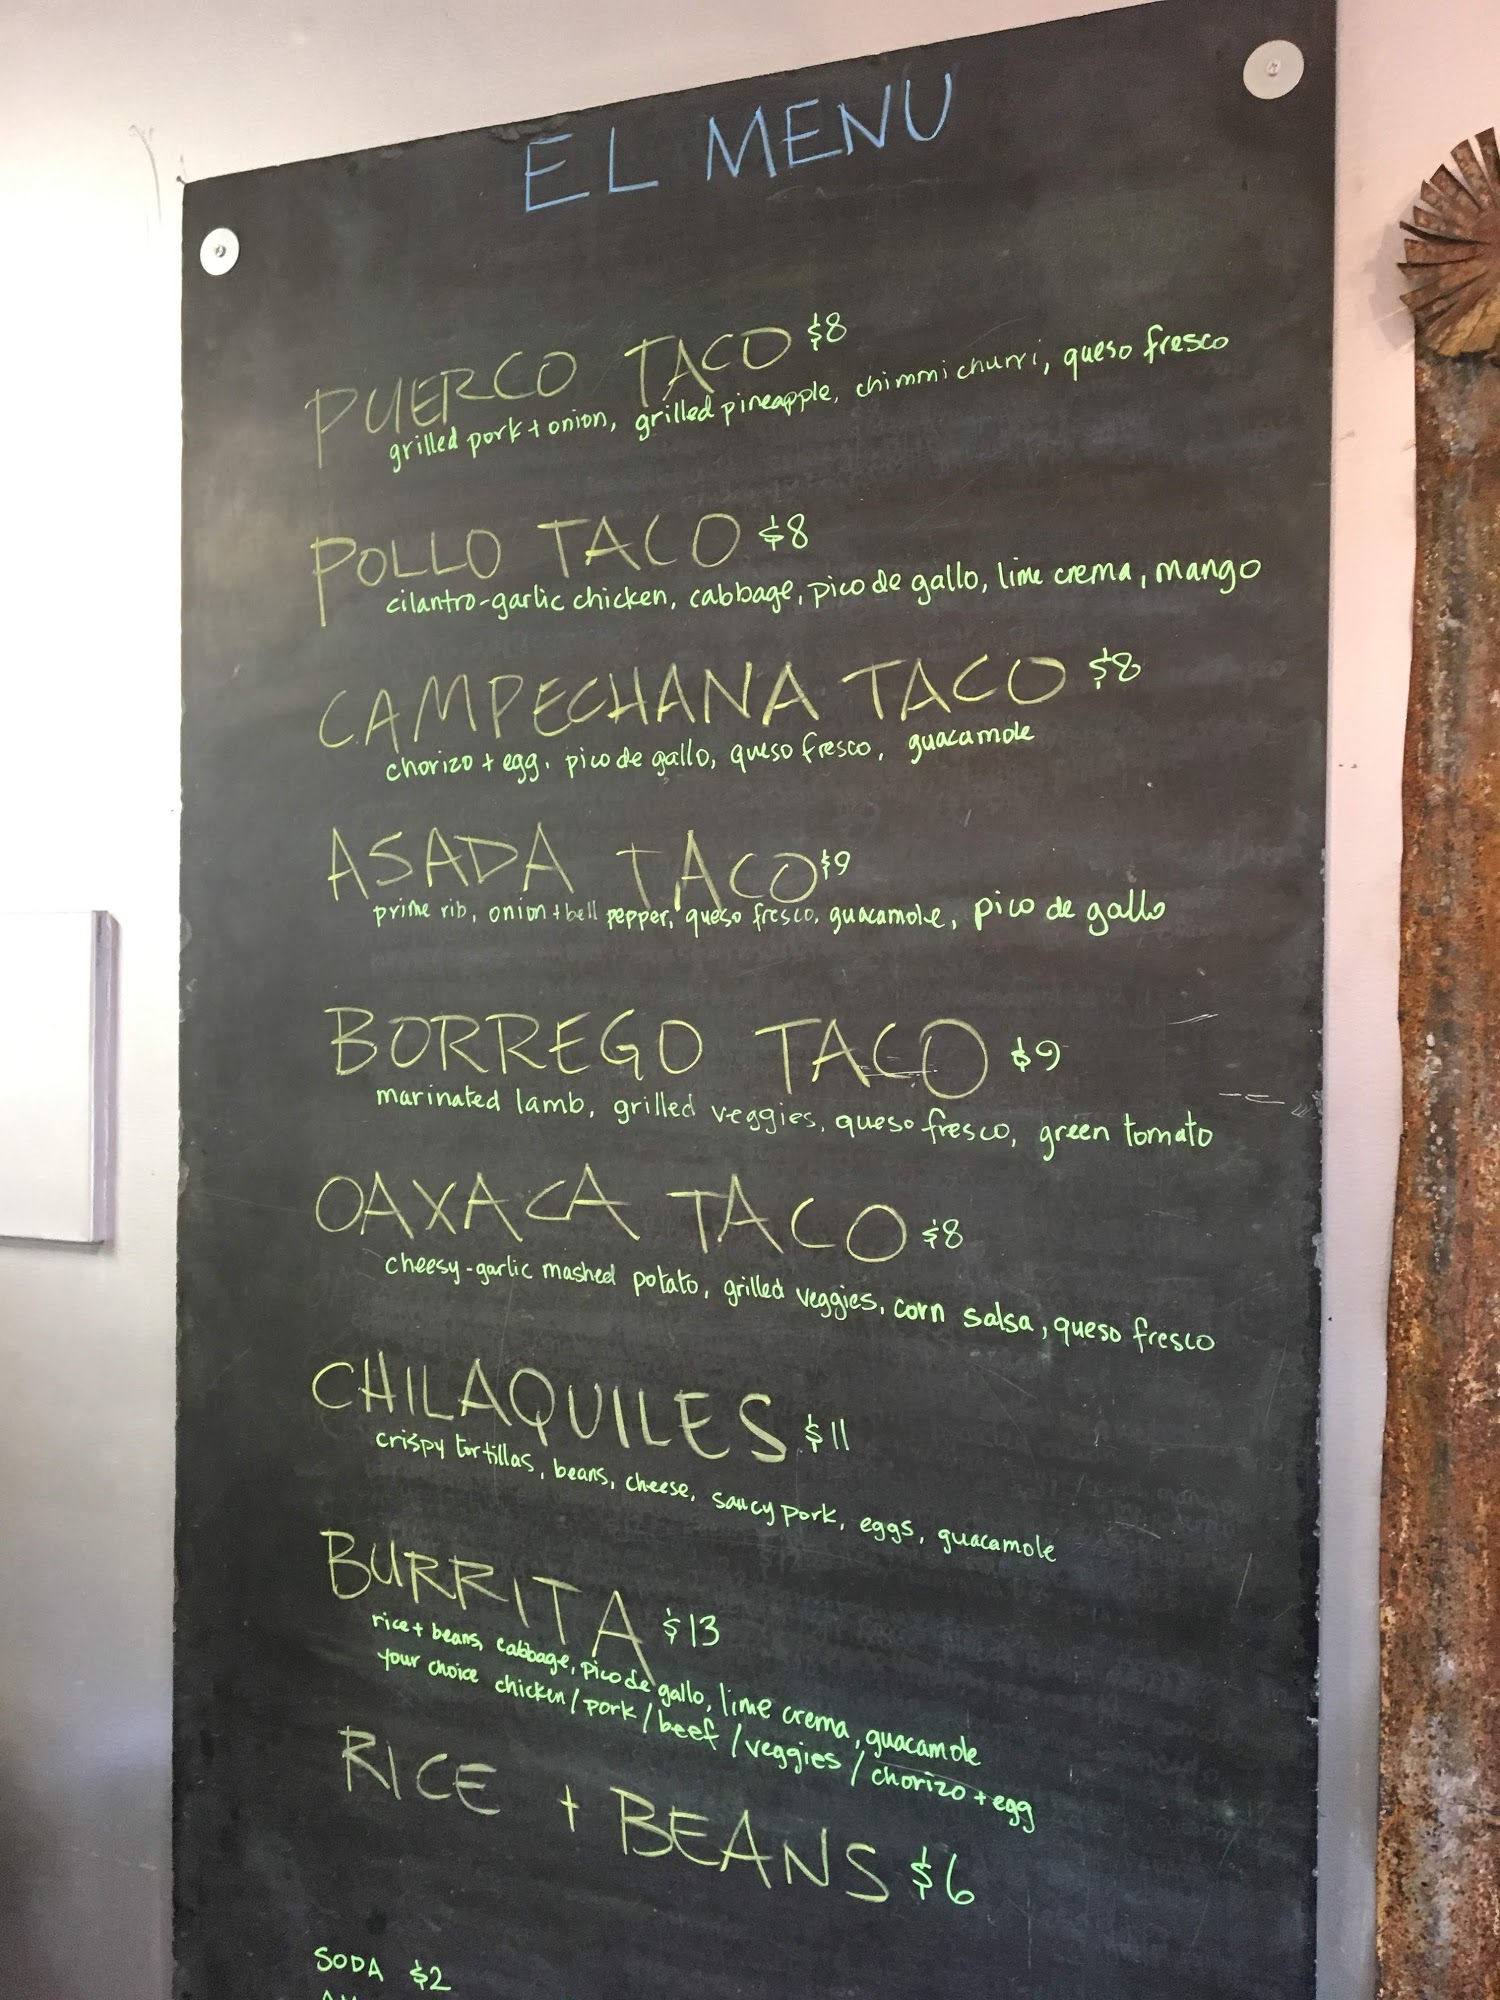 EL MENU
PUERCO TACO $8
grilled pork + onion, grilled pineapple, chimmichurri, queso fresco
POLLO TACO $8
cilantro-garlic chicken, cabbage, pico de gallo, lime crema, mango
CAMPECHANA TACO $8
chorizo + egg, pico de gallo, queso fresco, guacamole
ASADA TACO $9
prime rib, onion + bell pepper, queso fresco, guacamole, pico de gallo
BORREGO TACO $9
marinated lamb, grilled veggies, queso fresco, green tomato
OAXACA TACO $8
cheesy-garlic mashed potato, grilled veggies, corn salsa, queso fresco
CHILAQUILES $11
crispy tortillas, beans, cheese, saucy pork, eggs, guacamole
BURRITA $13
rice + beans, cabbage, pico de gallo, lime crema, guacamole
your choice chicken / pork / beef / veggies / chorizo + egg
RICE + BEANS $6
SODA $2